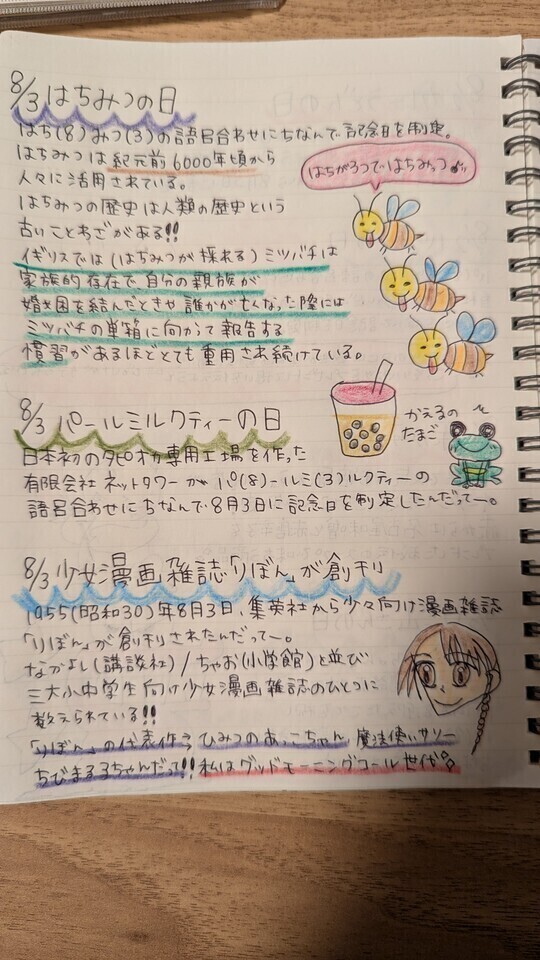 8/3 はちみつの日
はち(8)みつ(3)の語呂合わせにちなんで記念日を制定。
はちみつは紀元前6000年頃から
人々に活用されている。
はちみつの歴史は人類の歴史という
古いことわざがある!!
イギリスでは(はちみつが採れる)ミツバチは
家族的存在で、自分の親族が
婚姻を結んだときや誰かが亡くなった際には
ミツバチの巣箱に向かって報告する
慣習があるほどとても重用され続けている。
はちが3つではちみっつ♪
8/3 パールミルクティーの日
日本初のタピオカ専用工場を作った
有限会社ネットタワーがパ(8)ールミ(3)ルクティーの
語呂合わせにちなんで8月3日に記念日を制定したんだってー。
かえるの
たまご
8/3 少女漫画雑誌「りぼん」が創刊
1955(昭和30)年8月3日、集英社から少女向け漫画雑誌
「りぼん」が創刊されたんだってー。
なかよし(講談社)/ちゃお(小学館)と並び
三大小中学生向け少女漫画雑誌のひとつに
数えられている!!
「りぼん」の代表作→ひみつのあっこちゃん 魔法使いサリー
ちびまる子ちゃんだって!! 私はグッドモーニングコール世代